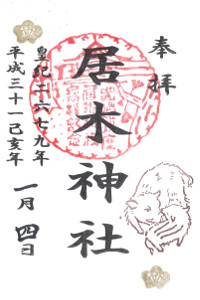 奉拝
居木神社
皇紀二千六百七十九年
平成三十一己亥年
一月四日